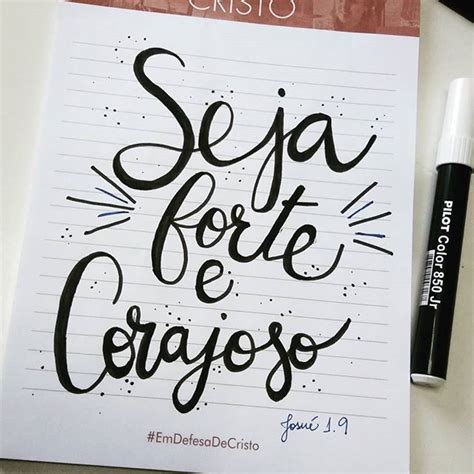 CRISTO
Seja
forte
e
Corajoso
Josué 1.9
#EmDefesaDeCristo
PILOT Color 850 Jr